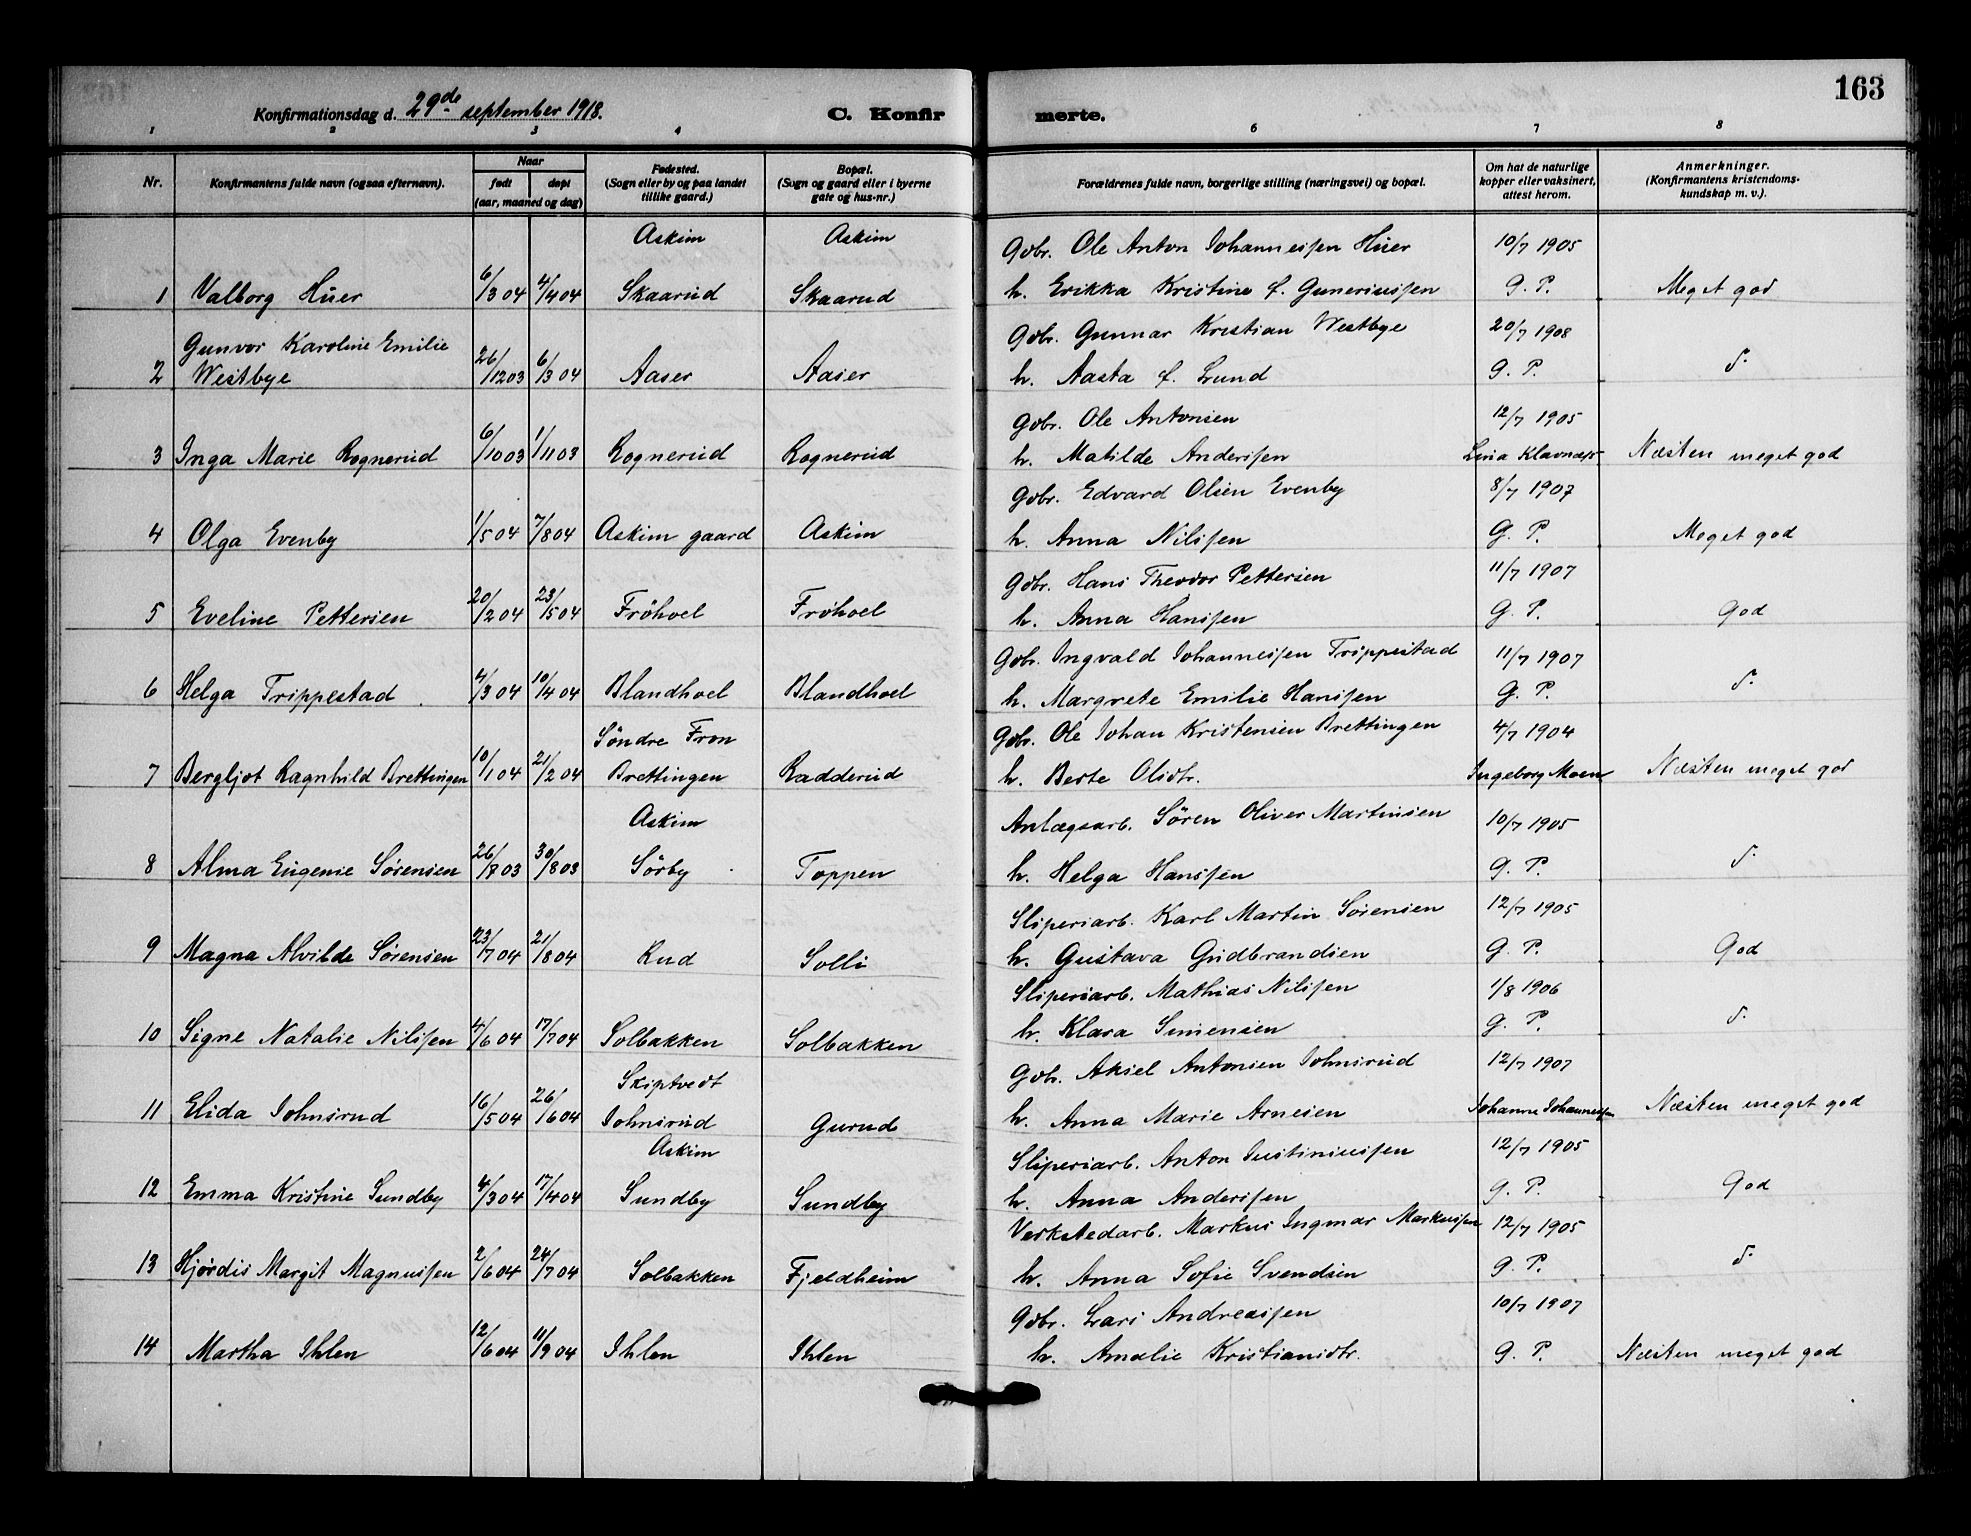 163
Konfirmationsdag d. 29de september 1918.
C. Konfirmerte.
1 2 3 4 6 7 8
Nr. Konfirmantens fulde navn (ogsaa efternavn). Naar født døpt (aar, maaned og dag) Fødested. (Sogn eller by og paa landet tillike gaard.) Bopæl. (Sogn og gaard eller i byerne gate og hus-nr.) Forældrenes fulde navn, borgerlige stilling (næringsvei) og bopæl. Om hat de naturlige kopper eller vaksinert, attest herom. Anmerkninger. (Konfirmantens kristendomskundskap m. v.).
Askim Askim Gbr. Ole Anton Johannessen Huer 10/7 1905
1 Valborg Huer 6/3 04 4/4 04 Skaarud Skaarud h. Erikka Kristine f. Guneriussen G. P. Meget god
Gunvor Karoline Emilie Gbr. Gunnar Kristian Westbye 20/7 1908
2 Westbye 26/12 03 6/3 04 Aaser Aaser h. Aasta f. Lund G. P. d.
Gbr. Ole Antonsen 12/7 1905
3 Inga Marie Rognerud 6/10 03 1/11 03 Rognerud Rognerud h. Matilde Anderssen Lina Klavness Næsten meget god
Gbr. Edvard Olsen Evenby 8/7 1907
4 Olga Evenby 1/5 04 7/8 04 Askim gaard Askim h. Anna Nilssen G. P. Meget god
Gbr. Hans Theodor Pettersen 11/7 1907
5 Eveline Pettersen 20/2 04 23/5 04 Frøhoel Frøhoel h. Anna Hanssen G. P. God
Gbr. Ingvald Johannessen Trippestad 11/7 1907
6 Helga Trippestad 4/3 04 10/4 04 Blandhoel Blandhoel h. Margrete Emilie Hanssen G. P. d.
Søndre Fron Gbr. Ole Johan Kristensen Brettingen 4/7 1904
7 Bergljot Ragnhild Brettingen 10/1 04 21/2 04 Brettingen Radderud h. Berte Olsdtr. Ingeborg Moen Næsten meget god
Askim Anlægsarb. Søren Oliver Martinsen 10/7 1905
8 Alma Eugenie Sørensen 26/8 03 30/8 03 Sørby Toppen h. Helga Hanssen G. P. d.
Sliperiarb. Karl Martin Sørensen 12/7 1905
9 Magna Alvilde Sørensen 23/7 04 21/8 04 Rud Solli h. Gustava Gudbrandsen G. P. God
Sliperiarb. Mathias Nilssen 1/8 1906
10 Signe Natalie Nilssen 4/6 04 17/7 04 Solbakken Solbakken h. Klara Simensen G. P. d.
Skiptvedt Gbr. Aksel Antonsen Johnsrud 12/7 1907
11 Elida Johnsrud 16/5 04 26/6 04 Johnsrud Gurud h. Anna Marie Arnesen Johanne Johannessen Næsten meget god
Askim Sliperiarb. Anton Justiniussen 12/7 1905
12 Emma Kristine Sundby 4/3 04 17/4 04 Sundby Sundby h. Anna Anderssen G. P. God
Verkstedarb. Markus Ingmar Markussen 12/7 1905
13 Hjørdis Margit Magnussen 2/6 04 24/7 04 Solbakken Fjeldheim h. Anna Sofie Svendsen G. P. d.
Gbr. Lars Andreassen 10/7 1907
14 Martha Ihlen 12/6 04 11/9 04 Ihlen Ihlen h. Amalie Kristiansdtr. G. P. Næsten meget god